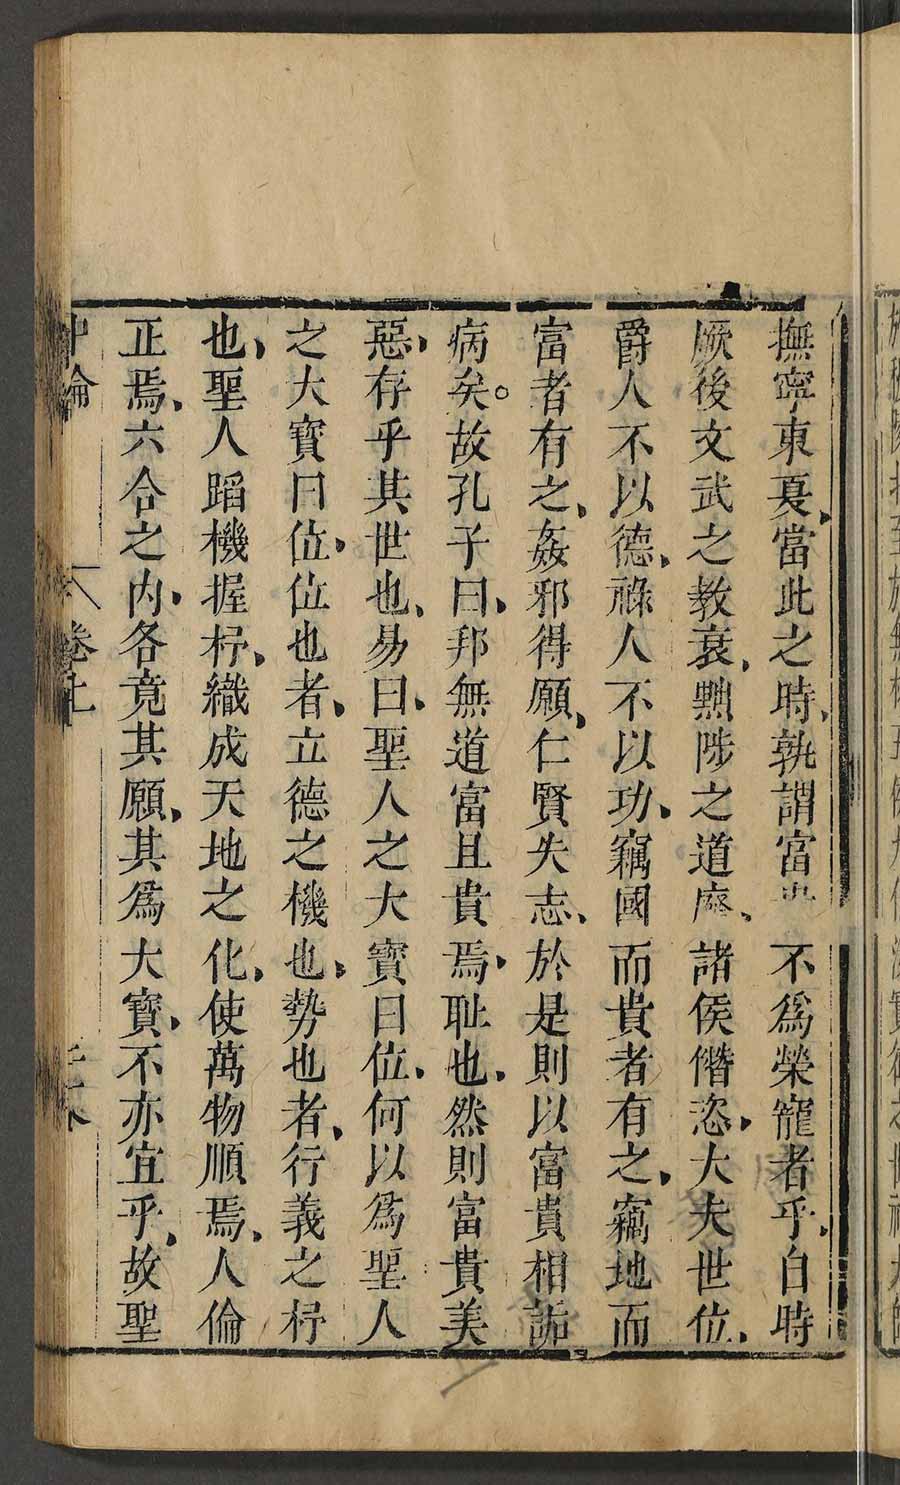 撫寧東夏、當此之時、孰謂富貴不爲榮寵者乎、自時
厥後文武之教衰、黜陟之道廢、諸侯僭恣、大夫世位、
爵人不以德、祿人不以功、竊國而貴者有之、竊地而
富者有之、姦邪得願、仁賢失志、於是則以富貴相詬
病矣。故孔子曰、邦無道富且貴焉、耻也、然則富貴美
惡、存乎其世也、易曰、聖人之大寳曰位、何以爲聖人
之大寳曰位、位也者、立德之機也、勢也者、行義之杼
也、聖人蹈機握杼、織成天地之化、使萬物順焉、人倫
正焉、六合之内、各竟其願、其爲大寳、不亦宜乎、故聖
中論 卷上